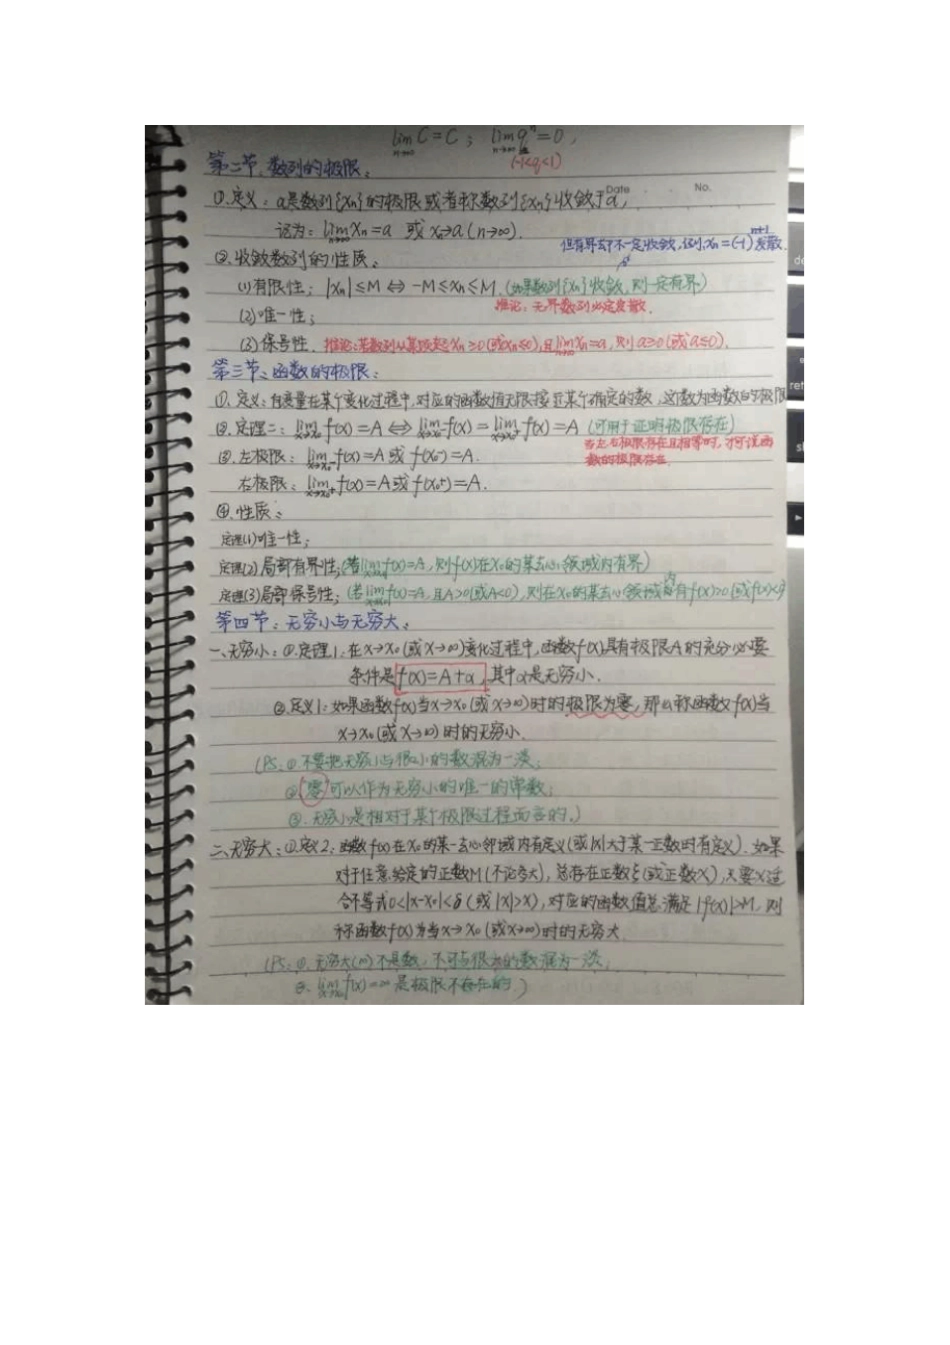 lim C=C； lim qⁿ=0，
n→∞ n→∞
(-1<q<1)
第二节、数列的极限：
Date No.
①.定义：a是数列{xn}的极限或者称数列{xn}收敛于a，
记为：lim xn=a 或 xn→a (n→∞).
n→∞
但有界却不一定收敛，例，xn=(-1)ⁿ⁺¹发散.
②.收敛数列的性质：
(1)有限性：|xn|≤M⇔-M≤xn≤M.(如果数列{xn}收敛，则一定有界)
推论：无界数列必定发散.
(2)唯一性；
(3)保号性. 推论：若数列从某项起xn≥0(或xn≤0)，且lim xn=a，则a≥0(或a≤0).
第三节、函数的极限：
①.定义：自变量在某个变化过程中，对应的函数值无限接近某个确定的数，这数为函数的极限
②.定理二：lim f(x)=A⇔lim f(x)=lim f(x)=A (可用于证明极限存在)
x→x₀ x→x₀⁻ x→x₀⁺
当左右极限存在且相等时，才可说函
数的极限存在.
③.左极限：lim f(x)=A或f(x₀⁻)=A.
x→x₀⁻
右极限：lim f(x)=A或f(x₀⁺)=A.
x→x₀⁺
④.性质：
定理(1)唯一性；
定理(2)局部有界性；(若lim f(x)=A，则f(x)在x₀的某去心领域内有界)
定理(3)局部保号性；(若lim f(x)=A，且A>0(或A<0)，则在x₀的某去心领域内有f(x)>0(或f(x)<0)
第四节：无穷小与无穷大：
一、无穷小：①.定理1：在x→x₀(或x→∞)变化过程中，函数f(x)具有极限A的充分必要
条件是f(x)=A+α，其中α是无穷小.
②.定义1：如果函数f(x)当x→x₀(或x→∞)时的极限为零，那么称函数f(x)当
x→x₀(或x→∞)时的无穷小.
(PS：①不要把无穷小与很小的数混为一谈；
②零可以作为无穷小的唯一的常数；
③.无穷小是相对于某个极限过程而言的.)
二、无穷大：①.定义2：函数f(x)在x₀的某一去心邻域内有定义(或|x|大于某一正数时有定义).如果
对于任意给定的正数M(不论多大)，总存在正数ξ(或正数X)，只要x适
合不等式0<|x-x₀|<δ(或|x|>X)，对应的函数值总满足|f(x)|>M，则
称函数f(x)为当x→x₀(或x→∞)时的无穷大.
(PS：①.无穷大(∞)不是数，不可与很大的数混为一谈；
②.lim f(x)=∞是极限不存在的.)
x→x₀